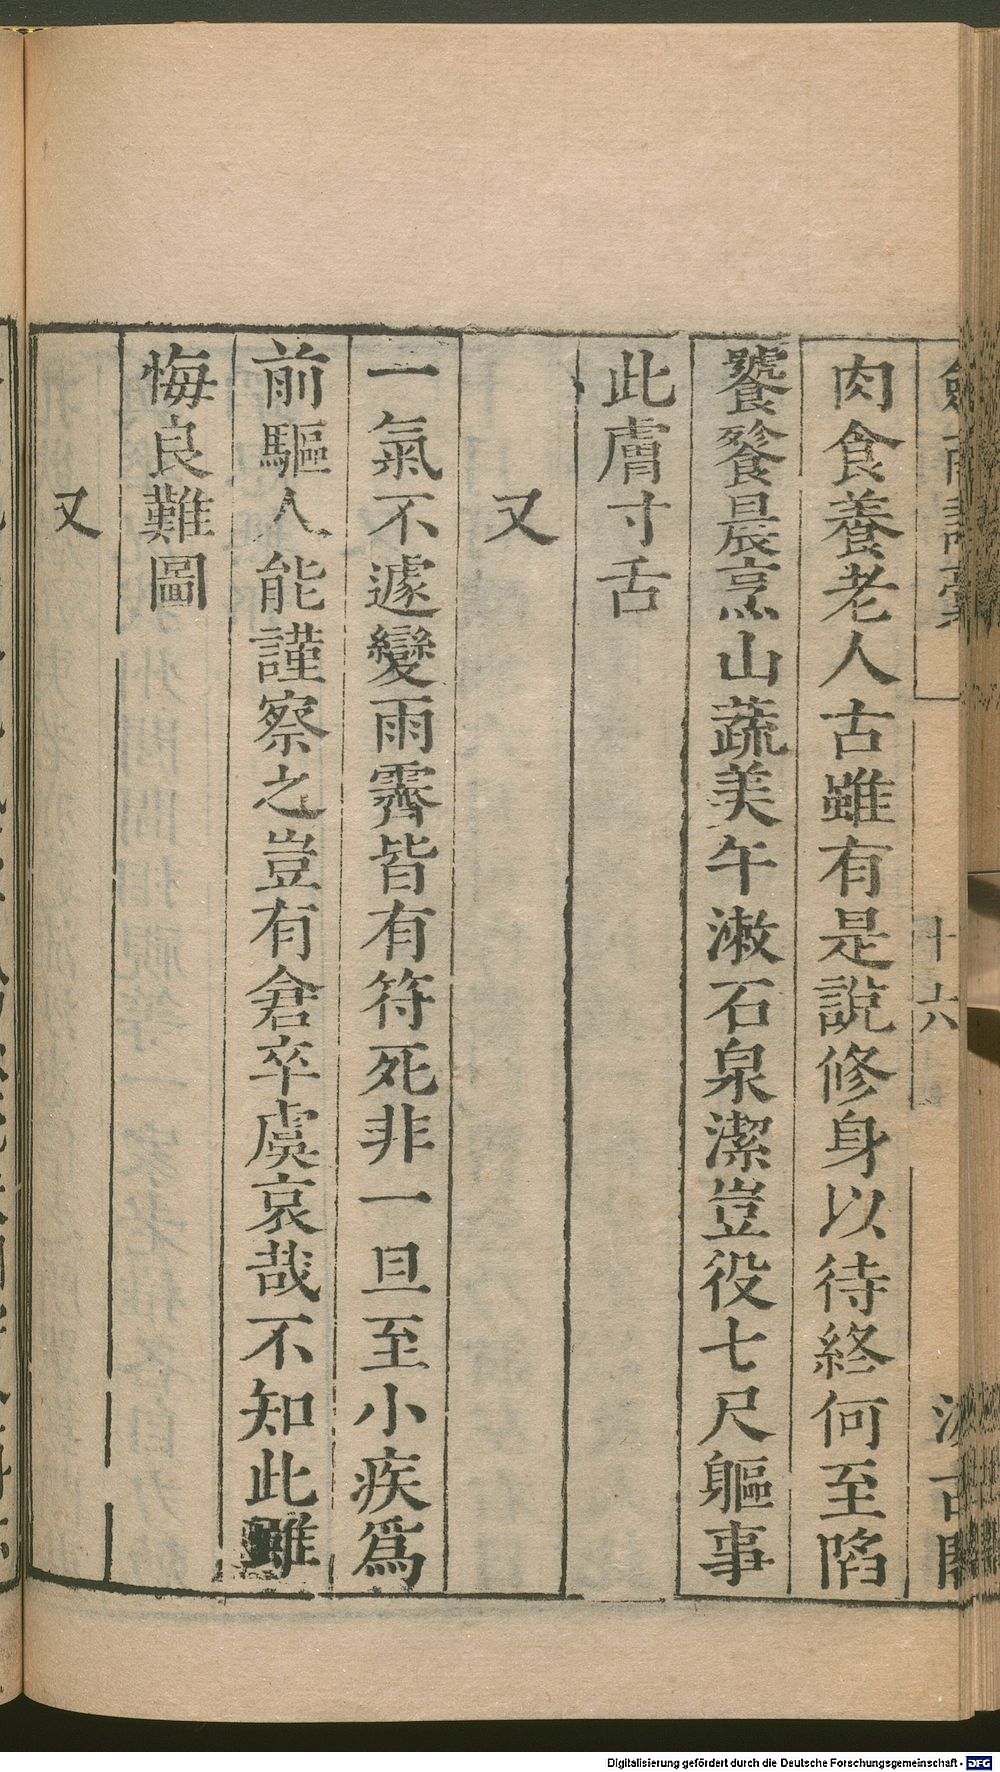 肉食養老人古雖有是說修身以待終何至陷
饕餮晨烹山蔬美午漱石泉潔豈役七尺軀事
此膚寸舌
又
一氣不遽變雨霽皆有符死非一旦至小疾爲
前驅人能謹察之豈有倉卒虞哀哉不知此雖
悔良難圖
又
十六
Digitalisierung gefördert durch die Deutsche Forschungsgemeinschaft - DFG